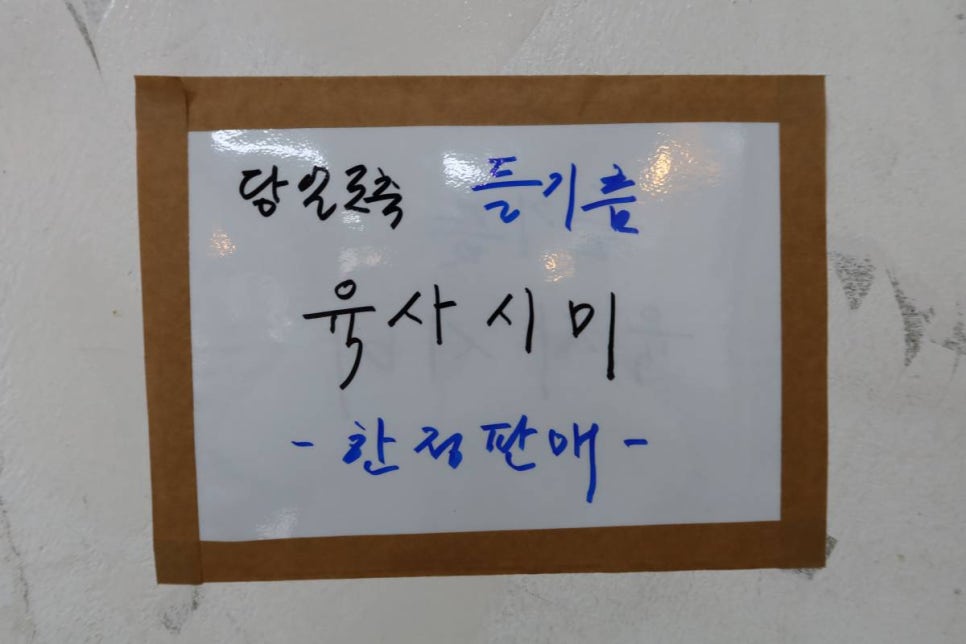 당일도축 들기름
육사시미
- 한정판매 -